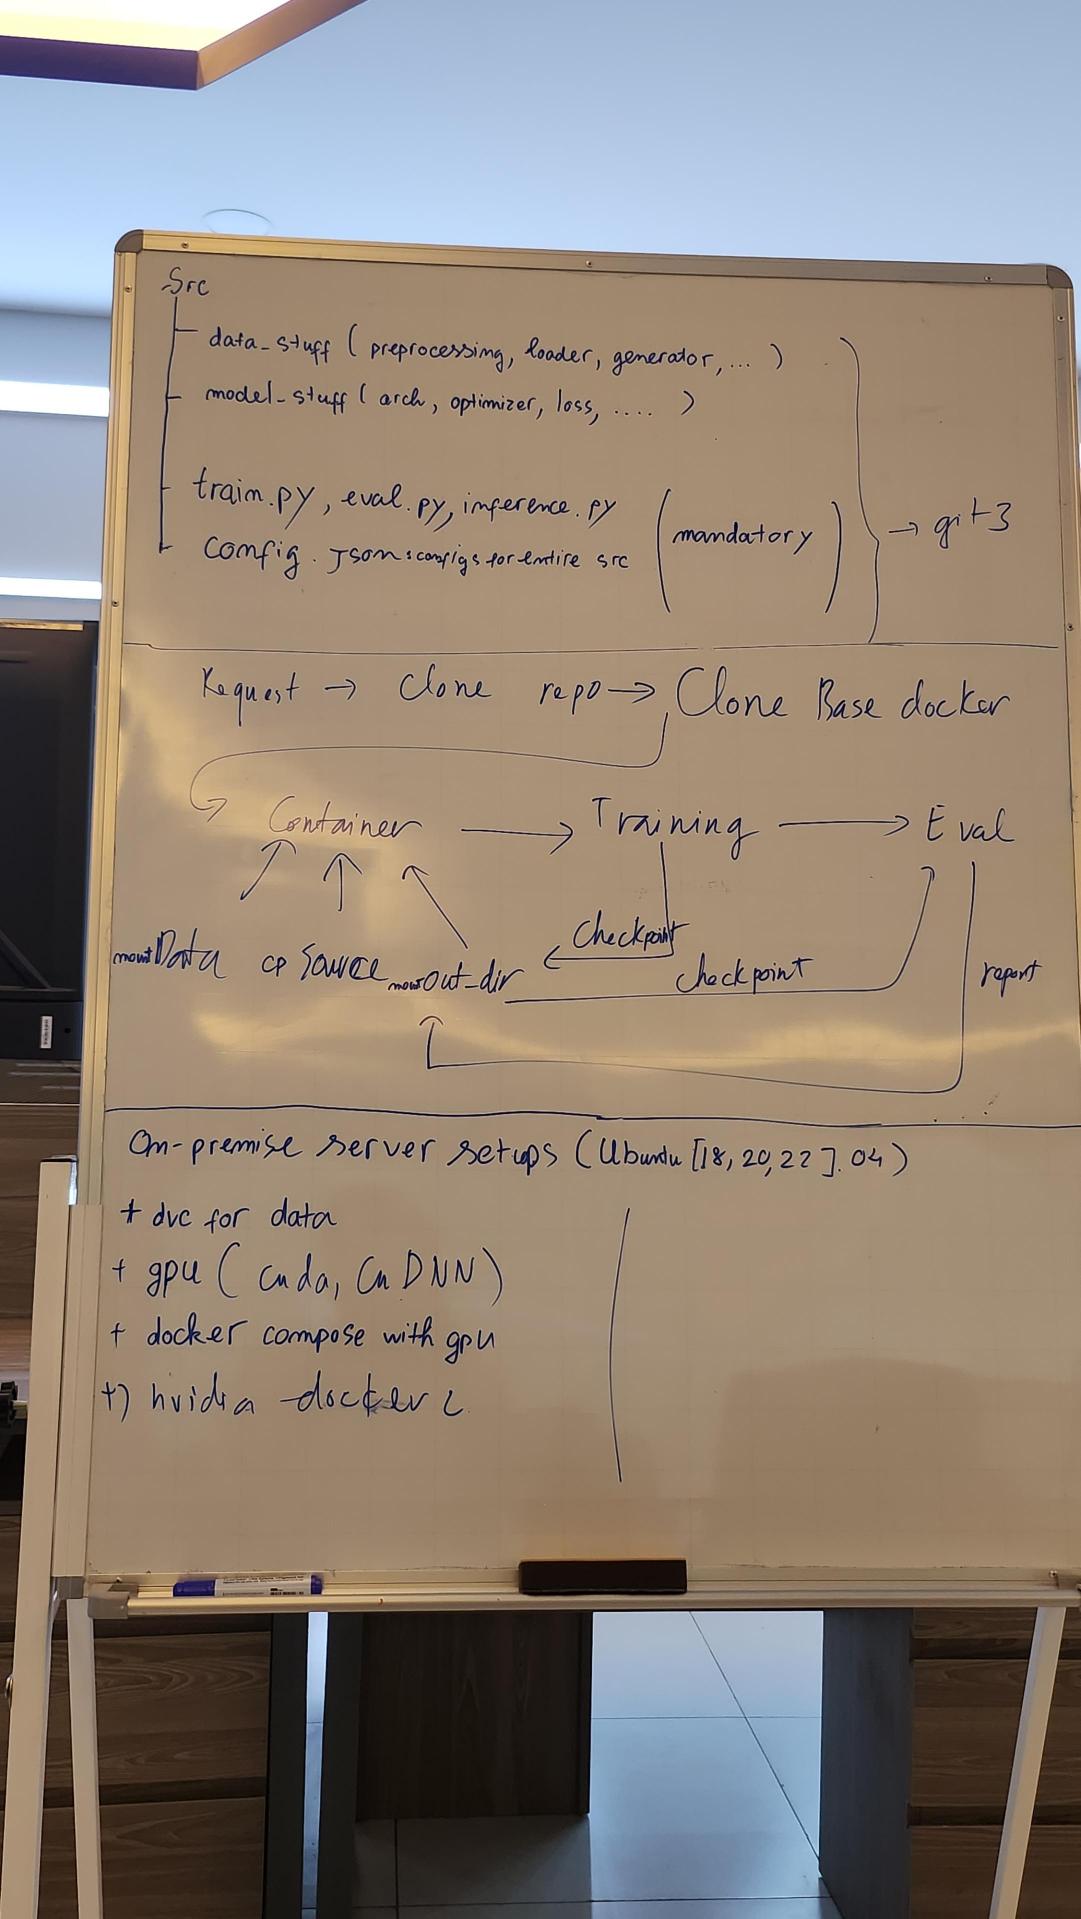 Src
data_stuff ( preprocessing, loader, generator, ... )
model_stuff ( arch, optimizer, loss, .... )
train.py, eval.py, inference.py
config. Json : configs for entire src
( mandatory )
→ git3
Request → Clone repo → Clone Base docker
Container → Training → Eval
checkpoint
mount Data cp Source mount out_dir
checkpoint
report
On-premise server setups (Ubuntu [18, 20, 22]. 04)
+ dvc for data
+ gpu ( Cuda, CuDNN )
+ docker compose with gpu
+) nvidia-docker 2